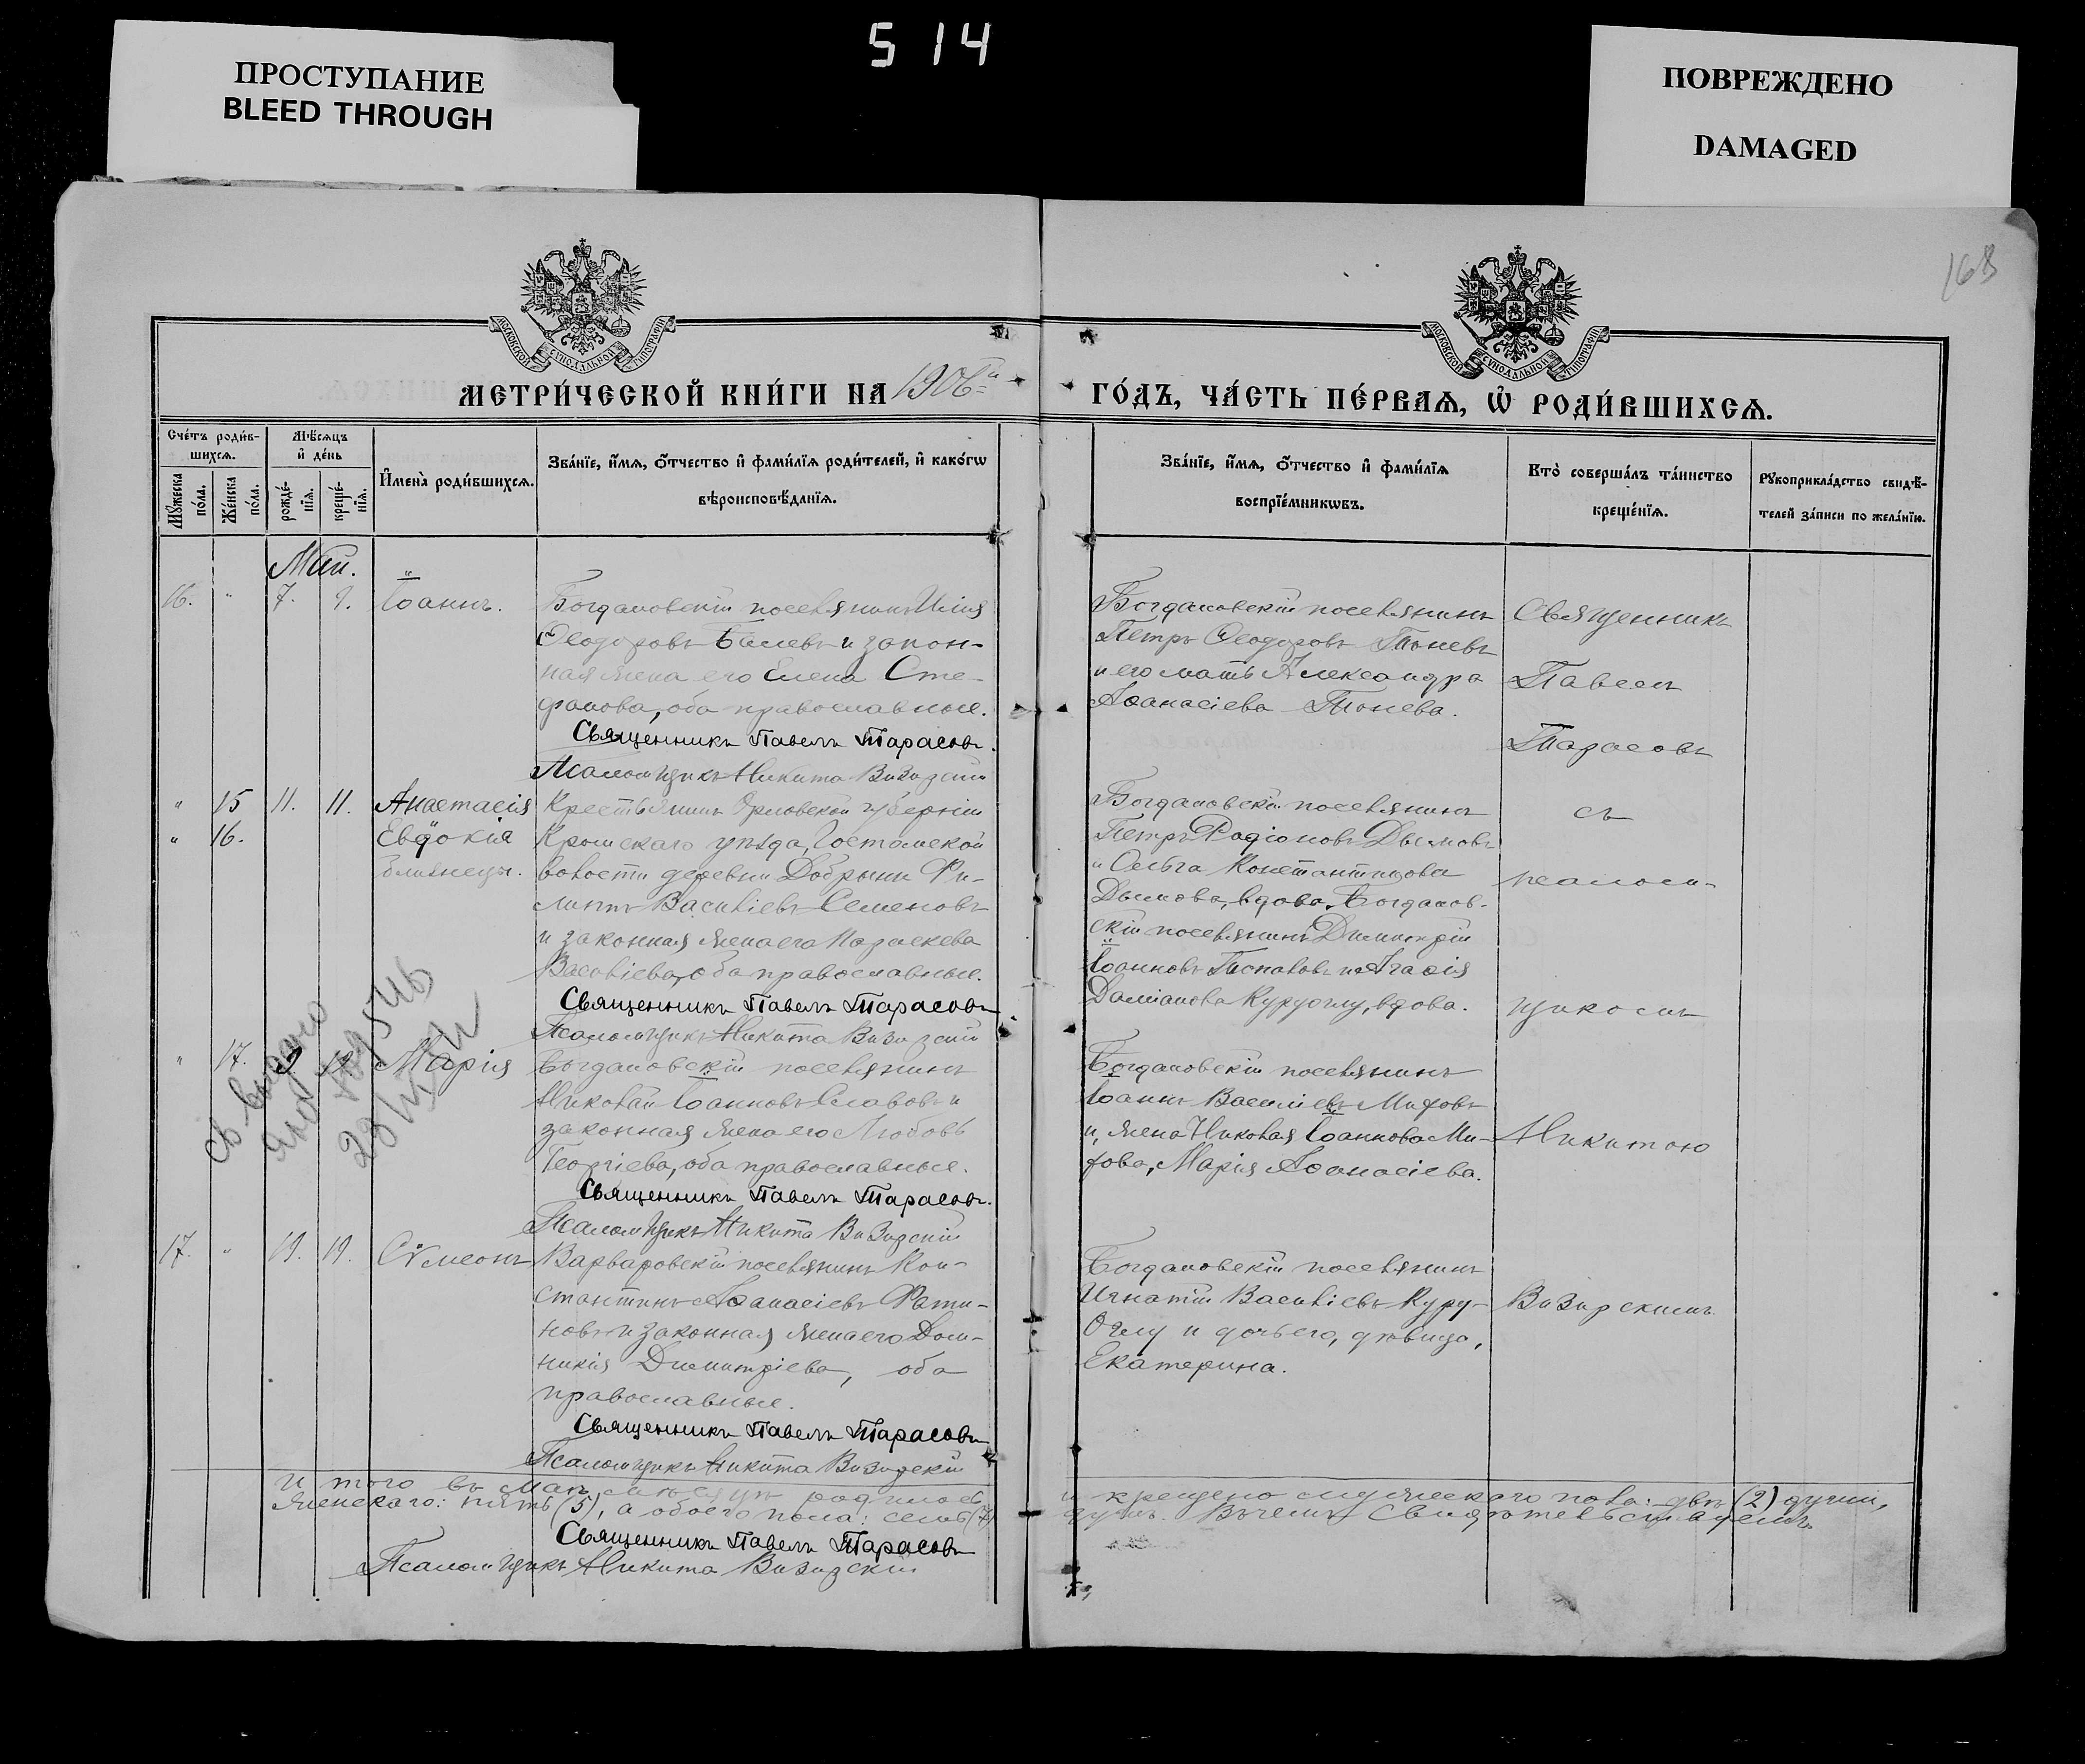 514
ПРОСТУПАНИЕ
BLEED THROUGH
ПОВРЕЖДЕНО
DAMAGED
168
МОСКОВСКОЙ СѴНОДАЛЬНОЙ ТИПОГРАФІИ
МОСКОВСКОЙ СѴНОДАЛЬНОЙ ТИПОГРАФІИ
МЕТРИ́ЧЕСКОЙ КНИ́ГИ НА 1906й
ГО́ДЪ, ЧА́СТЬ ПЕ́РВАѦ, Ѡ҆ РОДИ́ВШИХСѦ.
Сче́тъ роди́в-
шихсѧ.
Мꙋ́жеска по́ла.
Же́нска по́ла.
Мѣ́сѧцъ
и҆ де́нь
рожде́-
нїѧ.
креще́-
нїѧ.
И҆мена̀ роди́вшихсѧ.
Зва́нїе, и҆́мѧ, ѻ҆́тчество и҆ фами́лїѧ роди́телей, и҆ како́гѡ
вѣроисповѣ́данїѧ.
Зва́нїе, и҆́мѧ, ѻ҆́тчество и҆ фами́лїѧ
воспрїе́мникѡвъ.
Кто̀ соверша́лъ та́инство
креще́нїѧ.
Рꙋкоприкла́дство свидѣ́-
телей за́писи по жела́нїю.
Май.
16. " 7. 9. Іоаннъ.
Богдановскій поселянинъ Илія
Ѳеодоровъ Балевъ и закон-
ная жена его Елена Сте-
фанова, оба православные.
Священникъ Павелъ Тарасовъ.
Псаломщикъ Никита Визирскій
Богдановскій поселянинъ
Петръ Ѳеодоровъ Тоневъ
и его мать Александра
Аѳанасіева Тонева.
Священникъ
Павелъ
Тарасовъ
" 15 11. 11. Анастасія
" 16. Евдокія
близнецы.
Крестьянинъ Орловской губерніи
Кромскаго уѣзда, Гостомской
волости деревни Добрыни Фи-
липпъ Васильевъ Семеновъ
и законная жена его Параскева
Васильева, оба православные.
Священникъ Павелъ Тарасовъ
Псаломщикъ Никита Визирскій
Богдановскій поселянинъ
Петръ Родіоновъ Дымовъ
и Ольга Константинова
Дымова, вдова. Богданов-
скій поселянинъ Димитрій
Іоанновъ и Агаѳія
Даміанова Куруоглу, вдова.
съ
псалом-
щикомъ
" 17. Марія
Богдановскій поселянинъ
Николай Іоанновъ Славовъ и
законная жена его Любовь
Георгіева, оба православные.
Священникъ Павелъ Тарасовъ.
Псаломщикъ Никита Визирскій
Богдановскій поселянинъ
Іоаннъ Василіевъ Мифовъ
и, жена Николая Іоаннова Ми-
фова, Марія Аѳанасіева.
Никитою
св выдано
17. " 19. 19. Сѵмеонъ
Варваровскій поселянинъ Кон-
стантинъ Аѳанасіевъ Рати-
новъ и законная жена его Дом-
никія Димитріева, оба
православные.
Священникъ Павелъ Тарасовъ
Псаломщикъ Никита Визирскій
Богдановскій поселянинъ
Игнатій Васильевъ Куру-
Оглу и дочь его, дѣвица,
Екатерина.
Визирскимъ.
Итого въ маѣ мѣсяцѣ родилось и крещено мужескаго пола: двѣ (2) души,
женскаго: пять (5), а обоего пола: семь (7) душъ. Въ чемъ и свидѣтельствуемъ.
Священникъ Павелъ Тарасовъ
Псаломщикъ Никита Визирскій